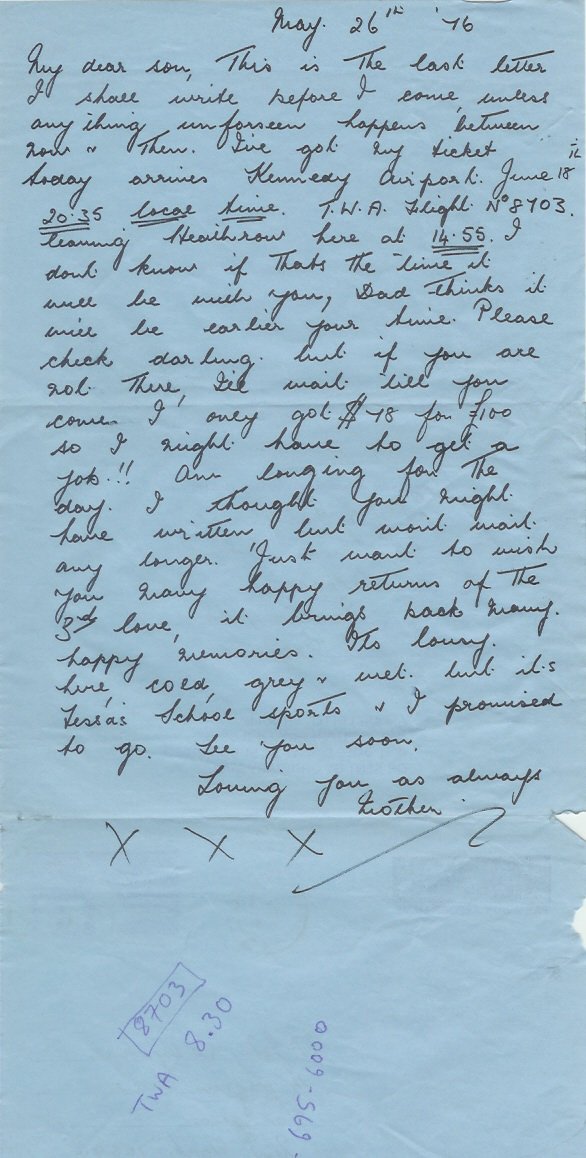 May. 26th '76
My dear son, This is the last letter
I shall write before I come, unless
any thing unforseen happens between
now & then. I've got my ticket
today arrives Kennedy Airport. June 18th
20.35 local time. T.W.A. Flight No 8703.
leaving Heathrow here at 14.55. I
dont know if thats the time it
will be with you, Dad thinks it
will be earlier your time. Please
check darling. but if you are
not there, I'll wait till you
come. I only got $ 78 for £100
so I might have to get a
job!! Am longing for the
day. I thought you might
have written but won't wait
any longer. Just want to wish
you many happy returns of the
3rd love, it brings back many
happy memories. Its lousy
here cold, grey & wet. but it's
Tessa's School sports & I promised
to go. See you soon.
Loving you as always
Mother.
X X X
8703
TWA 8.30
- 695-6000